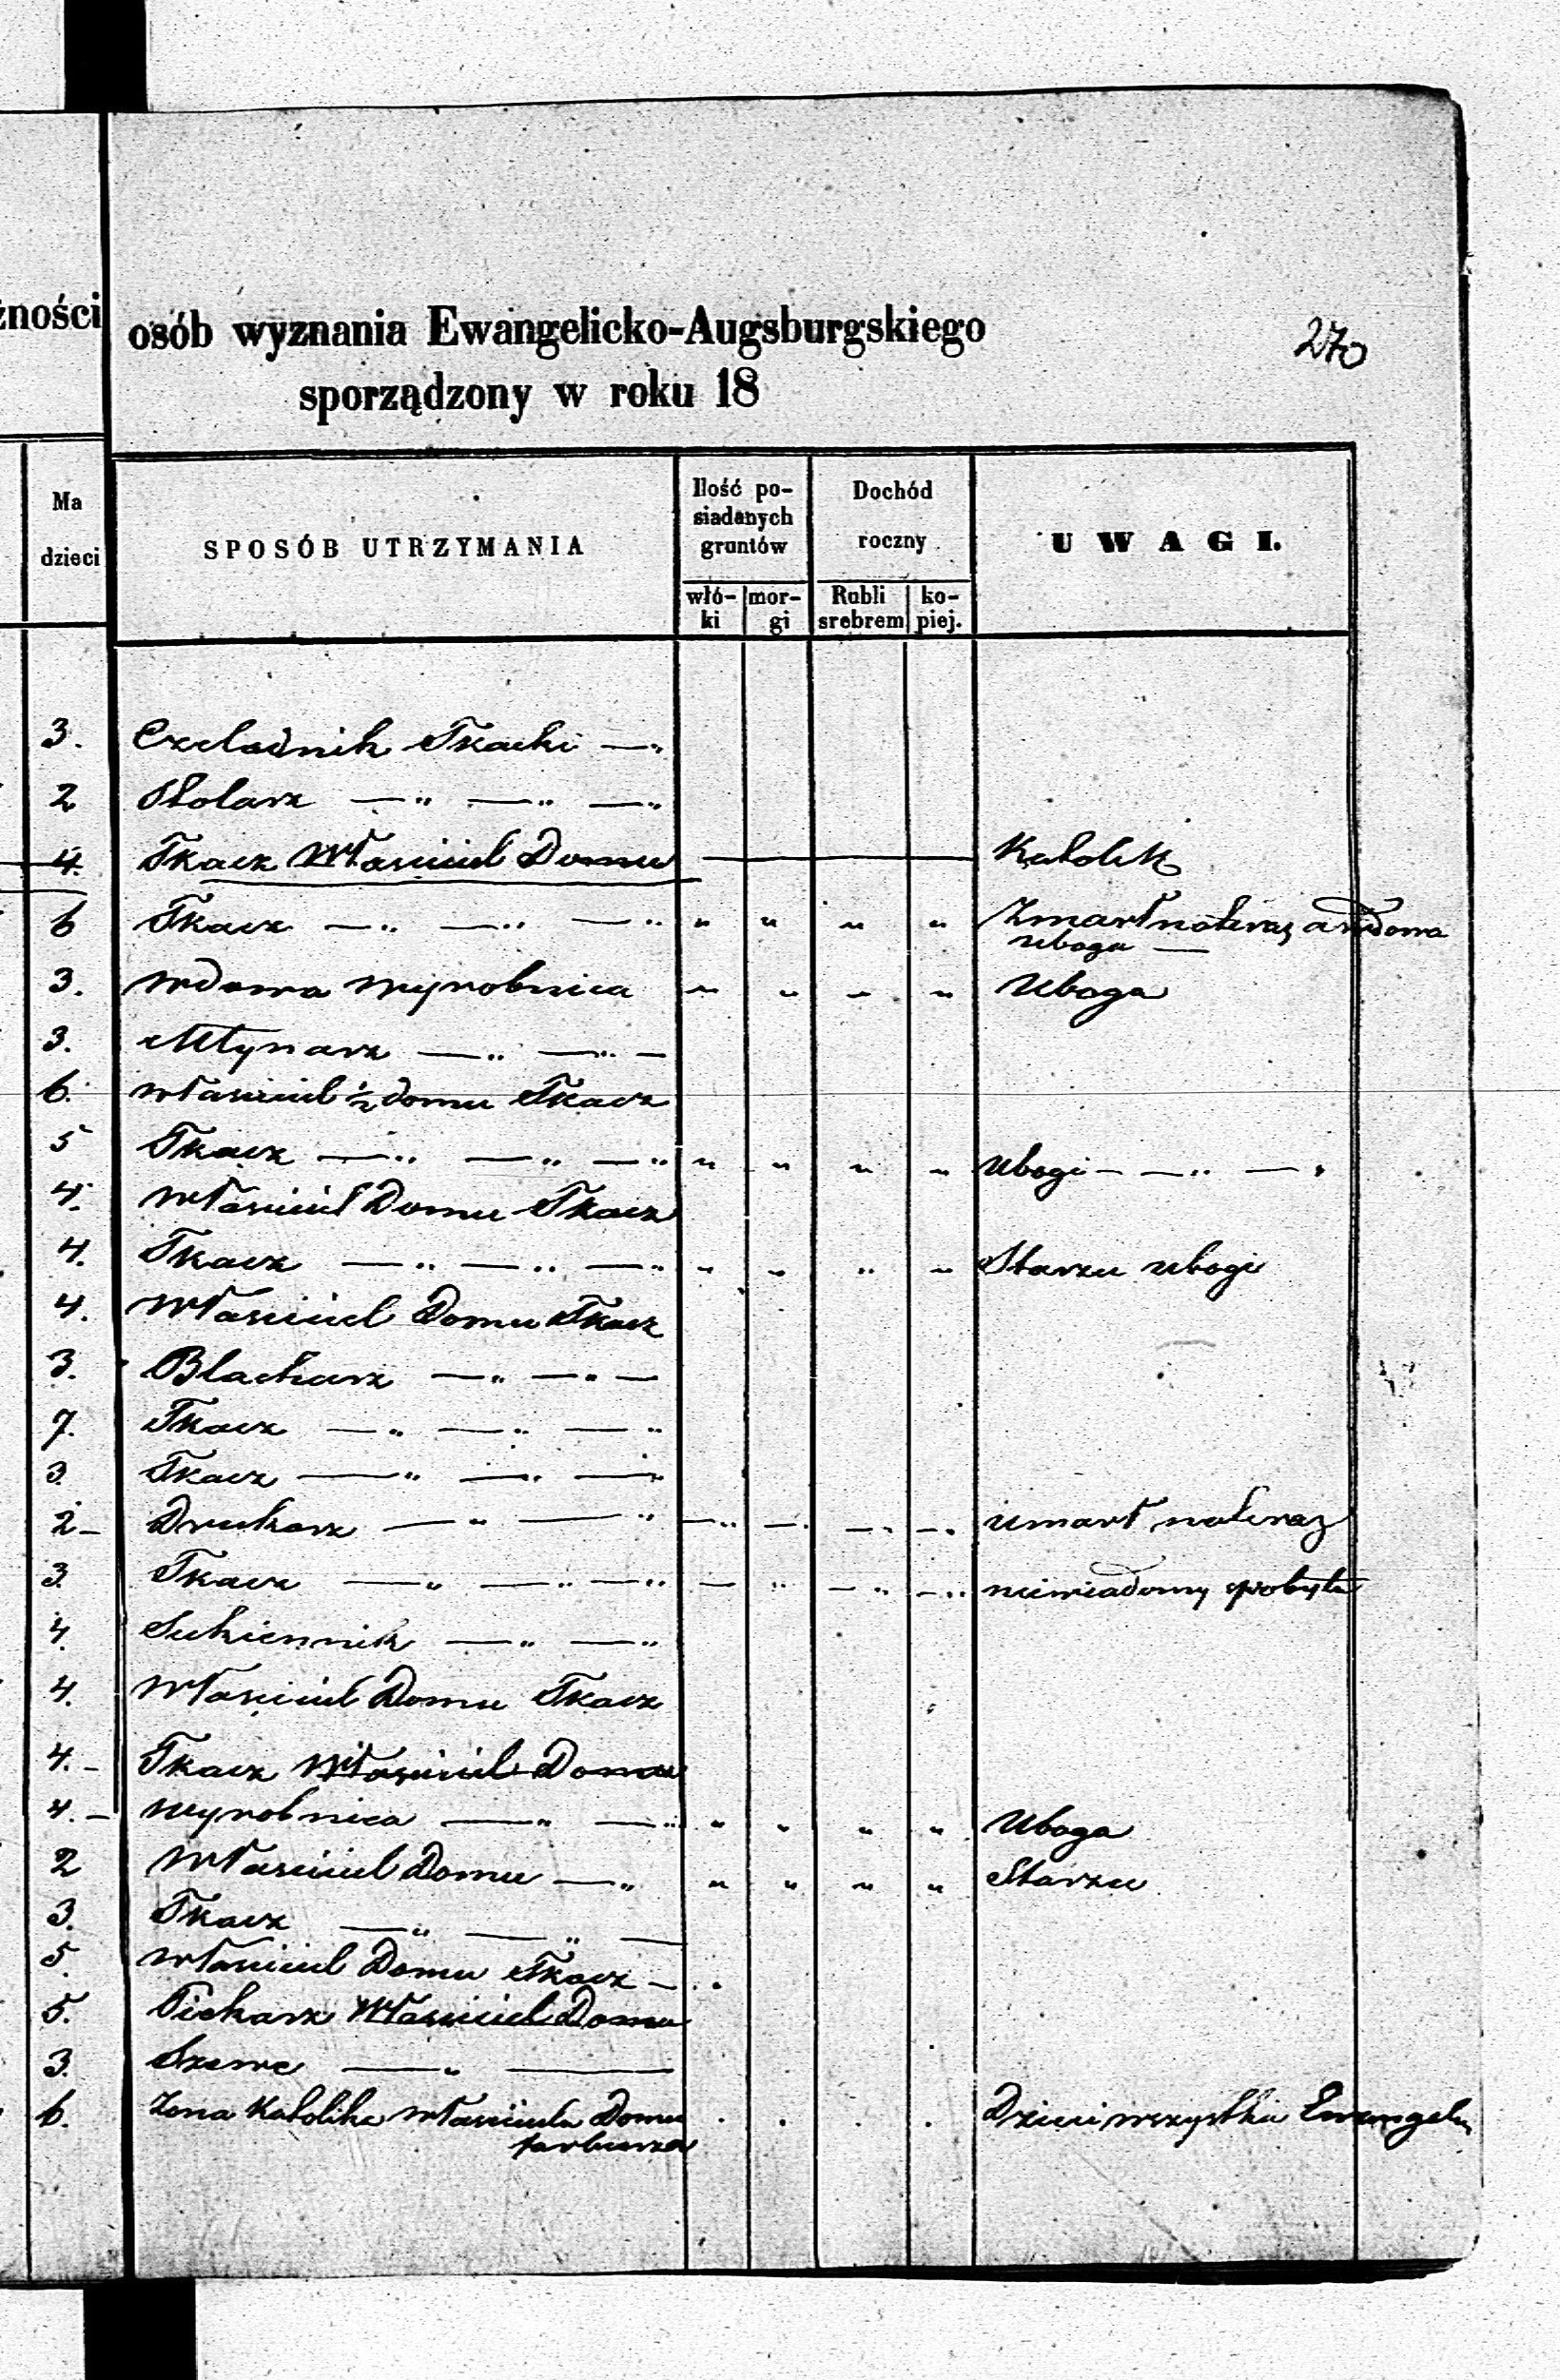 żności osób wyznania Ewangelicko-Augsburgskiego
270
sporządzony w roku 18
Ma dzieci
SPOSÓB UTRZYMANIA
Ilość po-
siadanych
gruntów
włó-
ki
mor-
gi
Dochód
roczny
Rubli
srebrem
ko-
piej.
UWAGI.
3. Czeladnik Tkacki —"
2 Stolarz —" —" —"
4. Tkacz Właściciel Domu — Katolik
6 Tkacz —" —" —" " " " " Zmarł nateraz a wdowa
uboga —
3. wdowa wyrobnica " " " " Uboga
3. Młynarz —" —" —
6. właściciel ½ domu Tkacz
5 Tkacz —" —" —" " " " " Ubogi — —" —"
4. właściciel Domu Tkacz
4. Tkacz —" —" —" " " " " Starzec ubogi
4. Właściciel Domu Tkacz
3. Blacharz —" —" —
7. Tkacz —" —" —"
3. Tkacz —" —" —"
2 — Drukarz —" —" —" —. —. —. umarł nateraz
3. Tkacz —" —" —" — " —" —" niewiadomy z pobytu
4. Sukiennik —" —"
4. Właściciel Domu Tkacz
4. — Tkacz Właściciel Domu
4. — wyrobnica —" —" " " " " Uboga
2 Właściciel Domu —" " " " " Starzec
3. Tkacz —" —" —
5. właściciel Domu Tkacz —
5. Piekarz Właściciel Domu
3. Szewc —" —
6. Żona Katolika właściciela Domu . . . . Dzieci wszystkie Ewangel
farbiarza